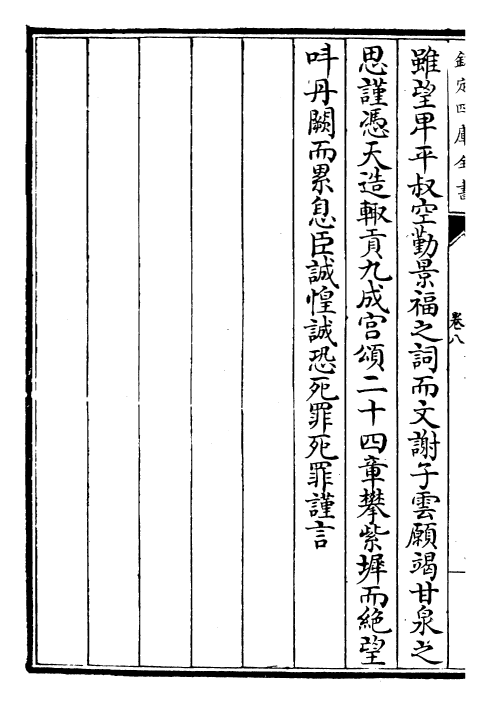 欽定四庫全書
卷八
雖望卑平叔空勤景福之詞而文謝子雲願竭甘泉之
思謹憑天造輙貢九成宫頌二十四章攀紫墀而絶望
叫丹闕而累息臣誠惶誠恐死罪死罪謹言